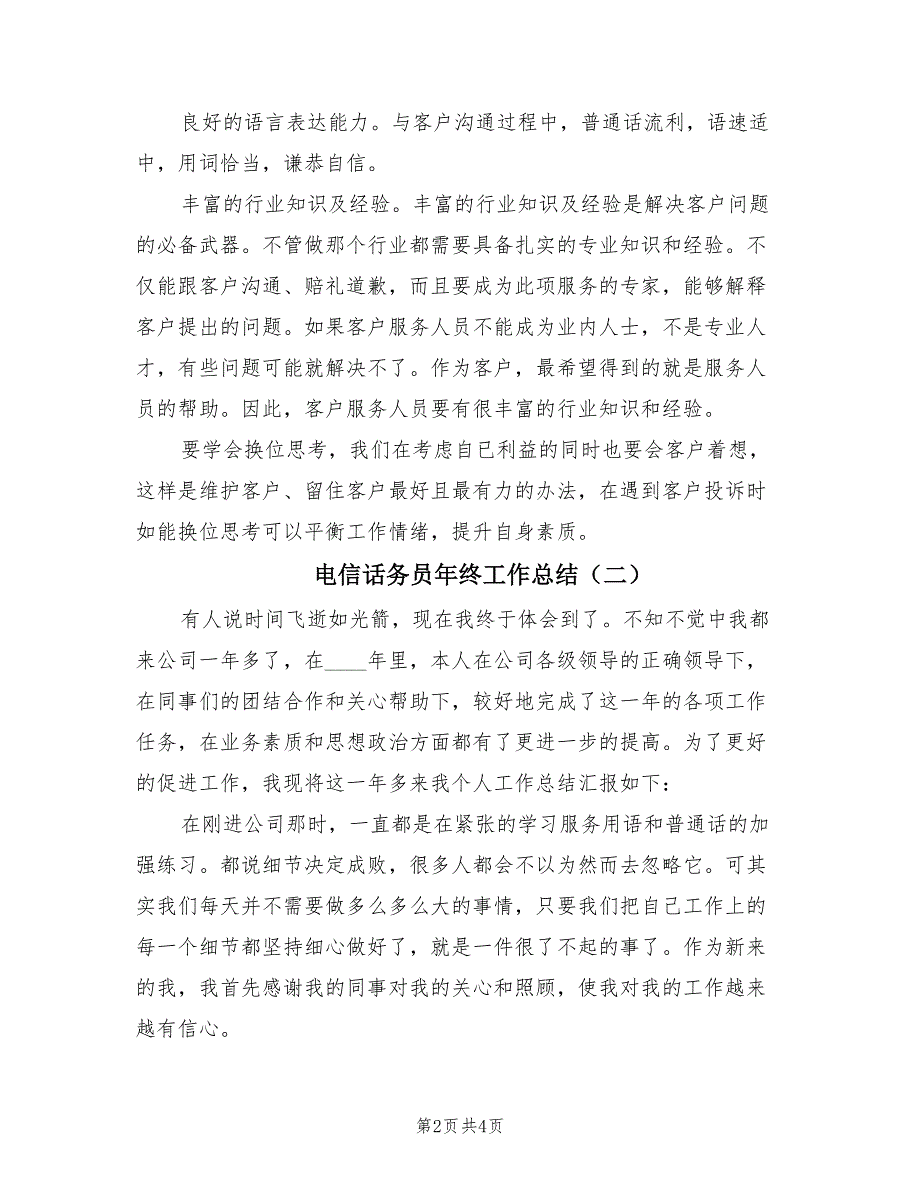 良好的语言表达能力。与客户沟通过程中，普通话流利，语速适
中，用词恰当，谦恭自信。
丰富的行业知识及经验。丰富的行业知识及经验是解决客户问题
的必备武器。不管做那个行业都需要具备扎实的专业知识和经验。不
仅能跟客户沟通、赔礼道歉，而且要成为此项服务的专家，能够解释
客户提出的问题。如果客户服务人员不能成为业内人士，不是专业人
才，有些问题可能就解决不了。作为客户，最希望得到的就是服务人
员的帮助。因此，客户服务人员要有很丰富的行业知识和经验。
要学会换位思考，我们在考虑自已利益的同时也要会客户着想，
这样是维护客户、留住客户最好且最有力的办法，在遇到客户投诉时
如能换位思考可以平衡工作情绪，提升自身素质。
电信话务员年终工作总结（二）
有人说时间飞逝如光箭，现在我终于体会到了。不知不觉中我都
来公司一年多了，在____年里，本人在公司各级领导的正确领导下，
在同事们的团结合作和关心帮助下，较好地完成了这一年的各项工作
任务，在业务素质和思想政治方面都有了更进一步的提高。为了更好
的促进工作，我现将这一年多来我个人工作总结汇报如下：
在刚进公司那时，一直都是在紧张的学习服务用语和普通话的加
强练习。都说细节决定成败，很多人都会不以为然而去忽略它。可其
实我们每天并不需要做多么多么大的事情，只要我们把自己工作上的
每一个细节都坚持细心做好了，就是一件很了不起的事了。作为新来
的我，我首先感谢我的同事对我的关心和照顾，使我对我的工作越来
越有信心。
第2页共4页